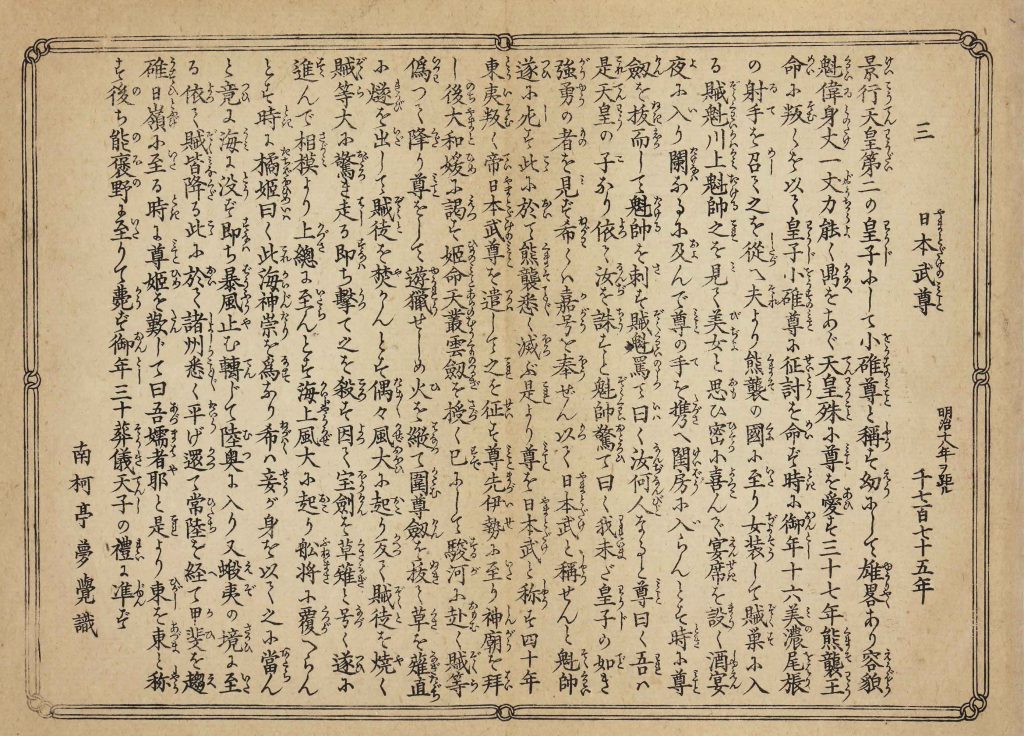 三　日本武尊　明治十八年ヲ距ル　千七百七十五年
景行天皇第二の皇子ふして小碓尊と稱す幼ふして雄畧あり容貌
魁偉身大一丈力能く鼎をあぐ天皇殊ふ尊を愛す三十七年熊襲王
命ふ叛くを以て皇子小碓尊ふ征討を命ず時ふ御年十六美濃尾張
の射手を召て之を從へ夫より熊襲の國ふ至り女装して賊巣ふ入
る賊魁川上魁帥之を見て美女と思ひ密ふ喜んで宴席を設く酒宴
夜ふ入り闌なるふ及んで尊の手を携へ閨房ふ入らんとす時ふ尊
劔を抜而して魁帥を刺す賊魁罵て曰く汝何人そると尊曰く吾ハ
是天皇の子なり依て汝を誅すと魁帥驚て曰く我未ざ皇子の如き
強勇の者を見ず希くハ嘉号を奉せん以て日本武と稱せんと魁帥
遂ふ死す此ふ於て熊襲悉く滅ぶ是より尊を日本武と称す四十年
東夷叛く帝日本武尊を遣して之を征す尊先伊勢ふ至り神廟を拜
し後大和媛ふ謁す姫命天叢雲劔を授く已ふして駿河ふ赴く賊等
偽つて降り尊をして遊獵せしめ火を縦て圍尊劔を抜て草を薙直
ふ燧を出して賊徒を焚かんとす偶々風大ふ起り反て賊徒を焼く
賊等大ふ驚き走る即ち撃て之を殺す因て宝劍を草薙と号く遂ふ
進んで相模より上總ふ至んとす海上風大ふ起り舩将ふ覆くらん
とす時ふ橘姫曰く此海神崇を爲なり希ハ妾が身を以て之ふ當ん
と竟ふ海ふ没ず即ち暴風止む轉じて陸奥ふ入り又蝦夷の境ふ至
る依て賊皆降る此ふ於て諸州悉く平げ還て常陸を経て甲斐を趨
碓日嶺ふ至る時ふ尊姫を歎トて曰吾嬬者耶と是より東を東と称
す後ち能褒野ふ至りて薨ず御年三十葬儀天子の禮ふ准ず
南柯亭夢覺識